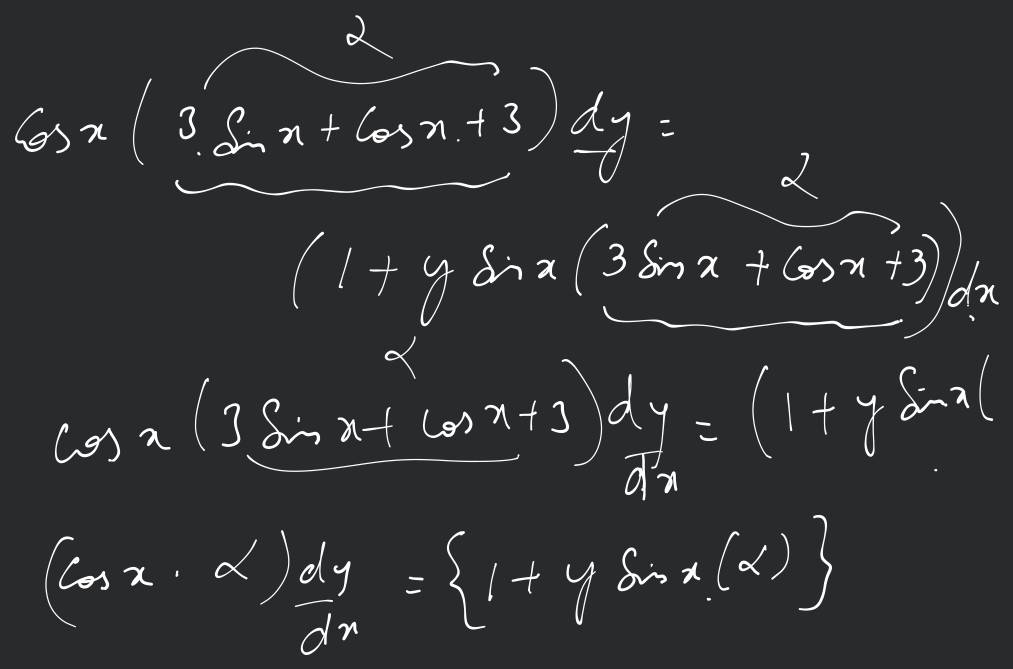 α
cos x ( 3. Sin x + Cos x. + 3 ) dy =
α
( 1 + y Sin x ( 3 Sin x + Cos x + 3 ) ) dx
α
cos x ( 3 Sin x + cos x + 3 ) dy/dx = ( 1 + y Sin x (
( Cos x . α ) dy/dx = { 1 + y Sin x. (α) }